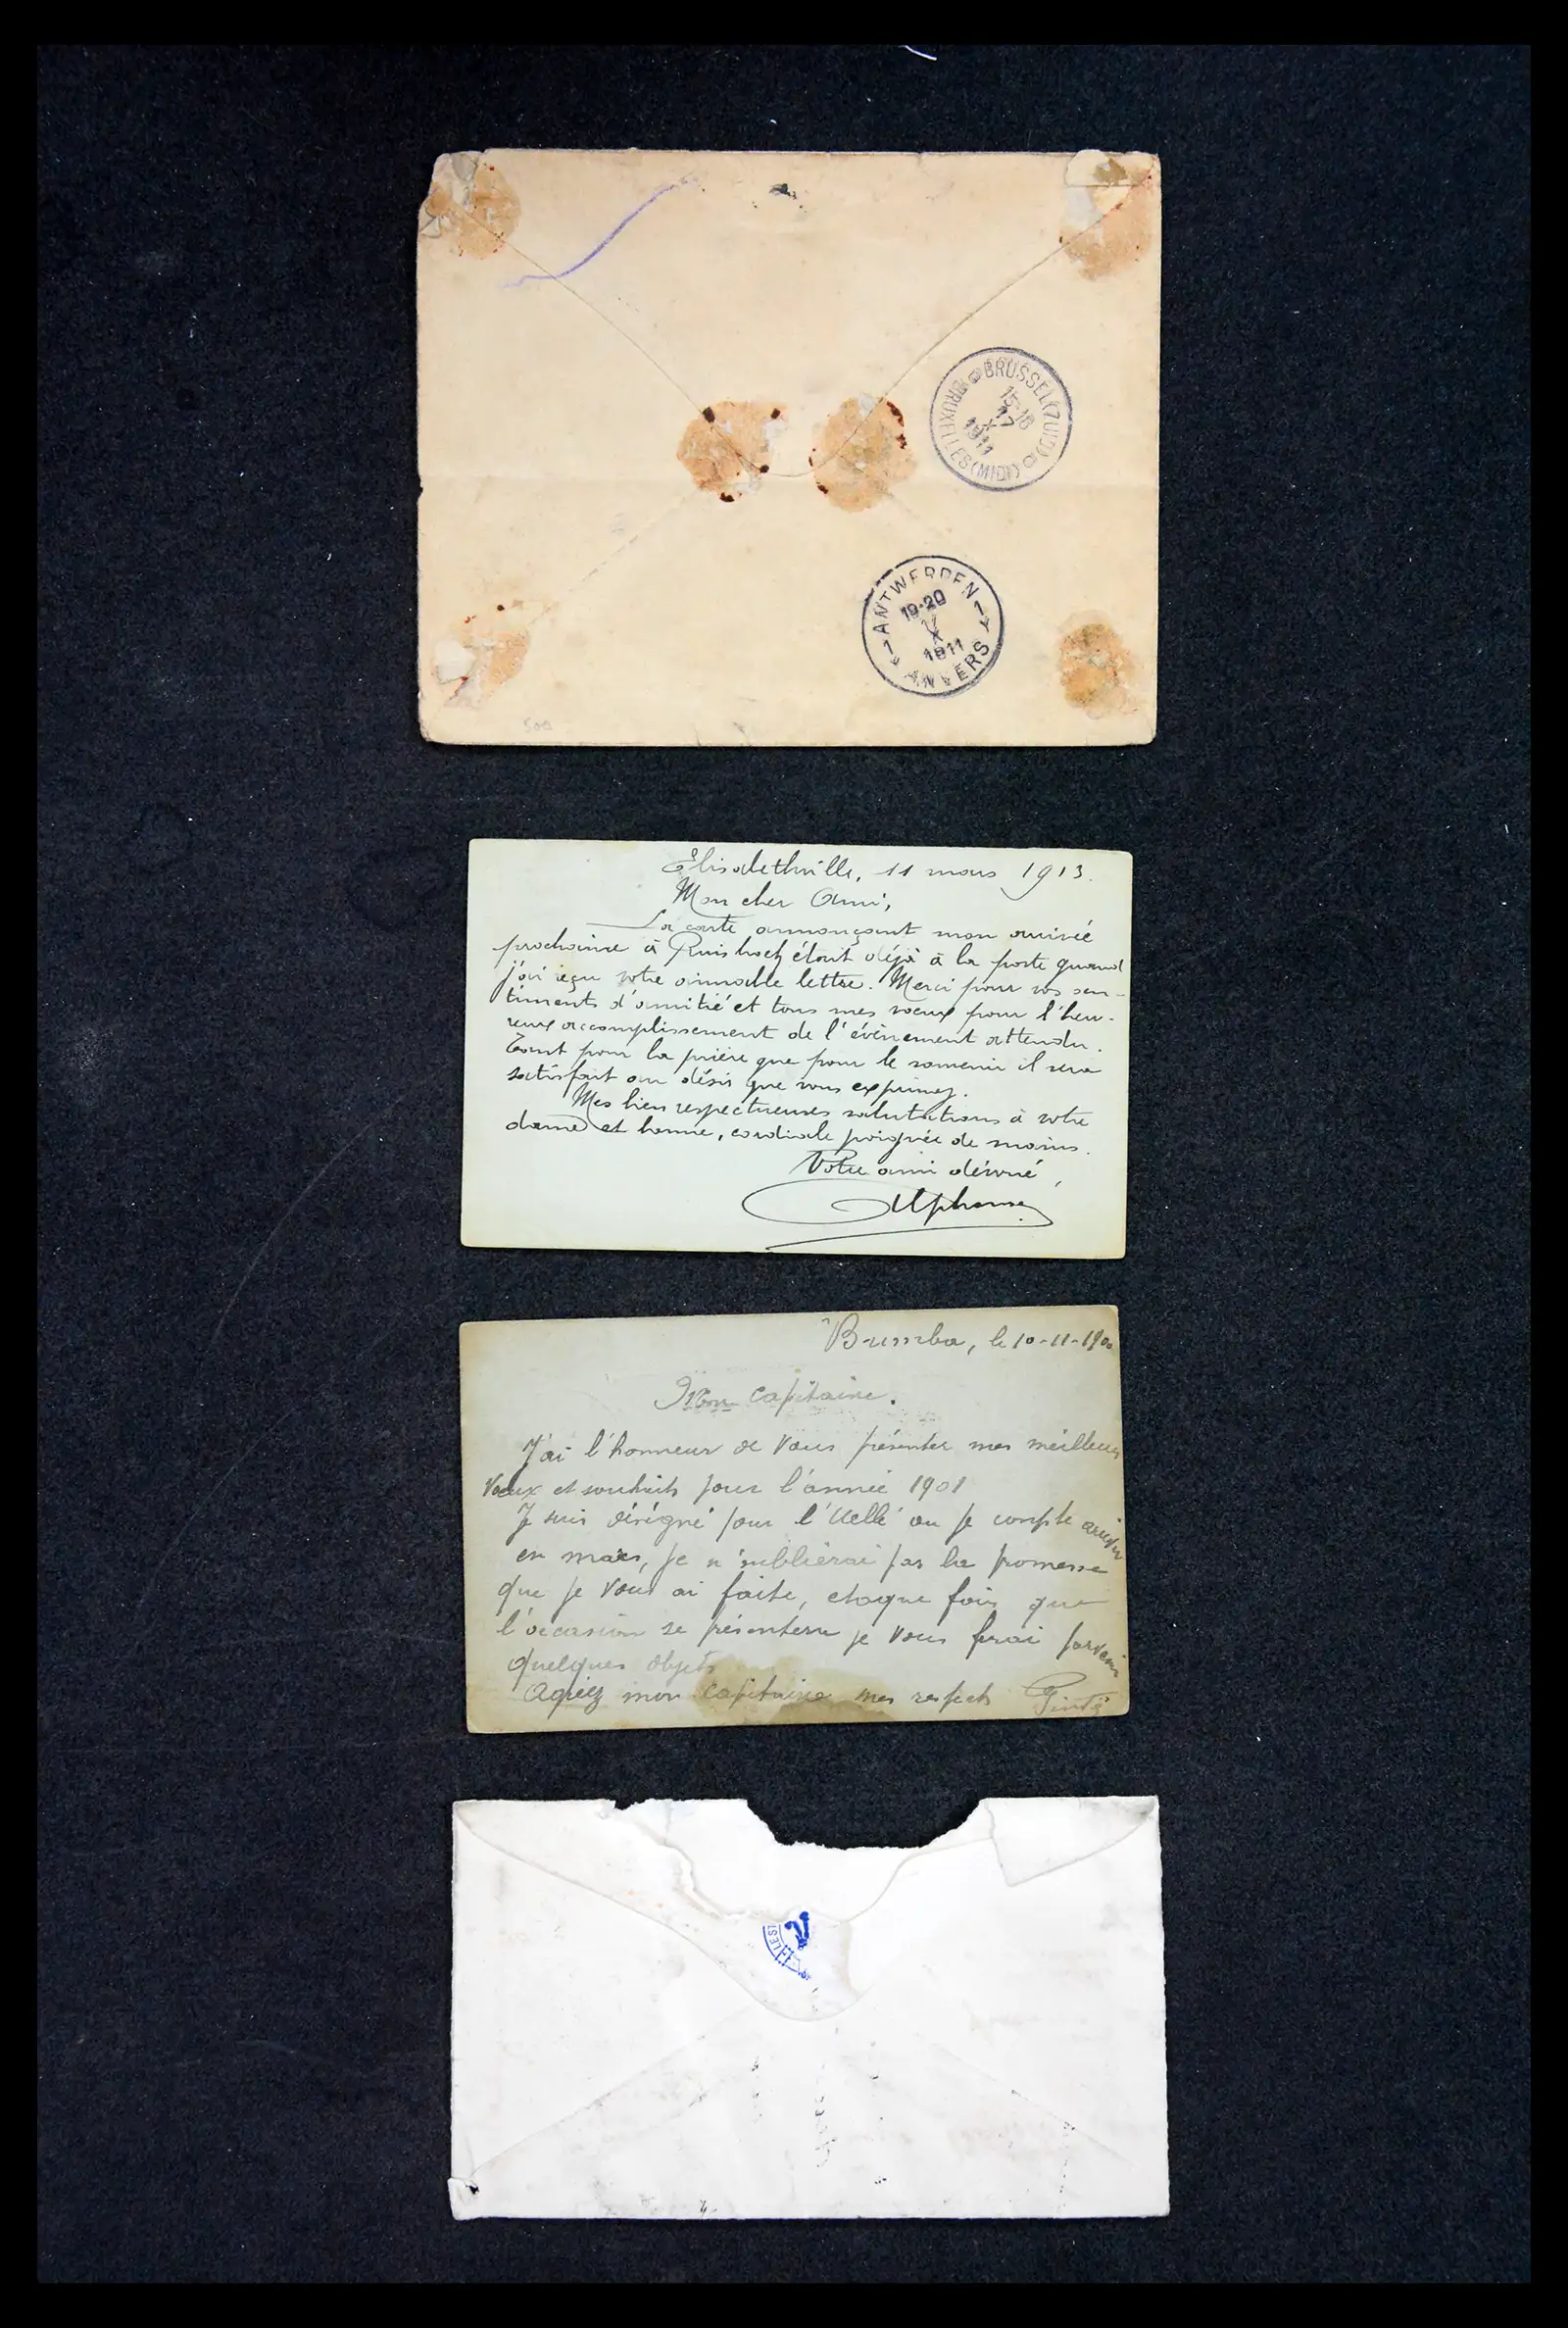 BRUSSEL (ZUID)
BRUXELLES (MIDI)
15-16
X
1911
ANTWERPEN 1
19-20
X
1911
ANVERS 1
500
Elisabethville, 11 mars 1913.
Mon cher Ami,
La carte annonçant mon arrivée
prochaine à Ruisbroek était déjà à la poste quand
j'ai reçu votre aimable lettre. Merci pour vos sen-
timents d'amitié et tous mes voeux pour l'heu-
reux accomplissement de l'évènement attendu.
Tant pour la prière que pour le souvenir il sera
satisfait au désir que vous exprimez.
Mes bien respectueuses salutations à votre
dame et bonne, cordiale poignée de mains.
Votre ami dévoué,
Alphonse
Bumba, le 10-11-1900
Mon capitaine.
J'ai l'honneur de vous présenter mes meilleurs
vœux et souhaits pour l'année 1901
Je suis désigné pour l'Uellé ou je compte arriver
en mars, je n'oublierai pas la promesse
que je vous ai faite, chaque fois que
l'occasion se présentera je vous ferai parvenir
quelques objets
Agréez mon capitaine mes respects
LES